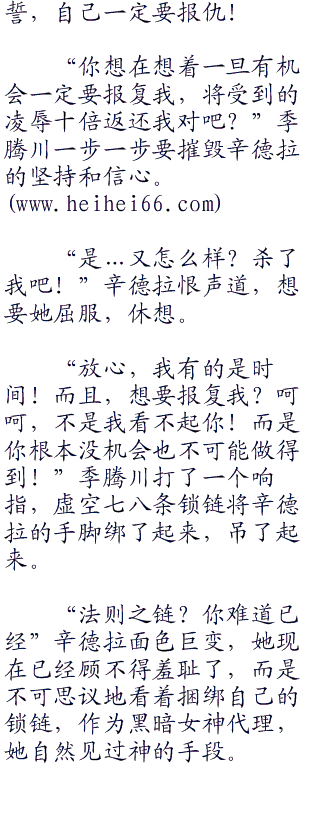 誓，自己一定要报仇！
“你想在想着一旦有机
会一定要报复我，将受到的
凌辱十倍返还我对吧？”季
腾川一步一步要摧毁辛德拉
的坚持和信心。
(www.heihei66.com)
“是…又怎么样？杀了
我吧！”辛德拉恨声道，想
要她屈服，休想。
“放心，我有的是时
间！而且，想要报复我？呵
呵，不是我看不起你！而是
你根本没机会也不可能做得
到！”季腾川打了一个响
指，虚空七八条锁链将辛德
拉的手脚绑了起来，吊了起
来。
“法则之链？你难道已
经”辛德拉面色巨变，她现
在已经顾不得羞耻了，而是
不可思议地看着捆绑自己的
锁链，作为黑暗女神代理，
她自然见过神的手段。